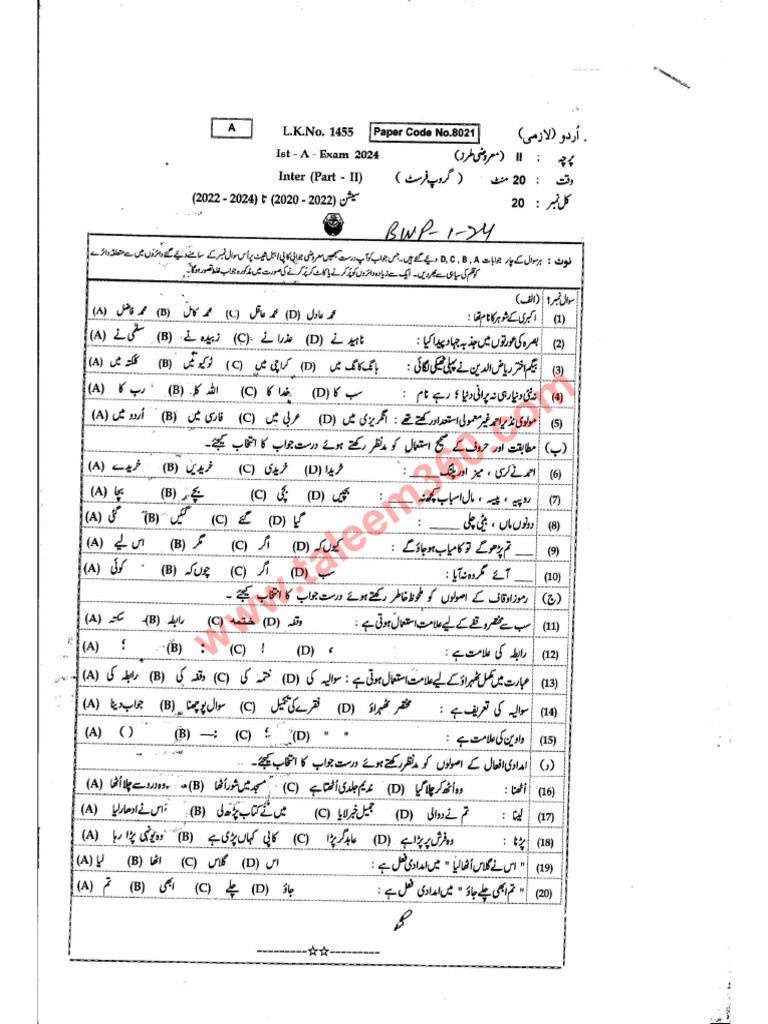 A
L.K.No. 1455
Paper Code No.8021
اُردو (لازمی)
Ist - A - Exam 2024
پرچہ : II (معروضی طرز)
Inter (Part - II)
وقت : 20 منٹ (گروپ فرسٹ)
سیشن (2022 - 2020) تا (2024 - 2022)
کل نمبر : 20
BWP-1-24
نوٹ : ہر سوال کے چار جوابات D, C, B, A دیے گئے ہیں۔ جس جواب کو آپ درست سمجھیں معروضی جوابی کاپی / ببل شیٹ پر اُس سوال نمبر کے سامنے دیے گئے دائروں میں سے متعلقہ دائرے
کو قلم کی سیاہی سے بھر دیں۔ ایک سے زیادہ دائروں کو پُر کرنے یا کاٹ کر پُر کرنے کی صورت میں مذکورہ جواب غلط تصور ہو گا۔
سوال نمبر 1 (الف)
(1) اکبری کے شوہر کا نام تھا : (A) محمد فاضل (B) محمد کامل (C) محمد عاقل (D) محمد عادل
(2) بصرہ کی عورتوں میں جذبہ جہاد پیدا کیا : (A) سلمٰی نے (B) زبیدہ نے (C) عذرا نے (D) ناہید نے
(3) بیگم اختر ریاض الدین نے پہلی ٹیکی لگائی : (A) کلکتہ میں (B) ٹوکیو میں (C) کراچی میں (D) ہانگ کانگ میں
(4) نہ نئی دنیا رہی نہ پرانی دنیا ؛ رہے نام (A) رب کا (B) اللہ کا (C) خدا کا (D) سب کا
(5) مولوی نذیر احمد غیر معمولی استعداد رکھتے تھے : (A) اُردو میں (B) فارسی میں (C) عربی میں (D) انگریزی میں
(ب) مطابقت اور حروف کے صحیح استعمال کو مدنظر رکھتے ہوئے درست جواب کا انتخاب کیجئے۔
(6) احمد نے کرسی ، میز اور پلنگ ____ (A) خریدے (B) خریدیں (C) خریدی (D) خریدا
(7) روپیہ ، پیسہ ، مال اسباب کچھ نہ ____ (A) بچا (B) بچے (C) بچی (D) بچیں
(8) دونوں ماں ، بیٹی چلی ____ (A) گئی (B) گئیں (C) گئے (D) گیا
(9) ____ تم پڑھو گے تو کامیاب ہو جاؤ گے : (A) اس لیے (B) مگر (C) اگر (D) کیوں کہ
(10) ____ آئے مگر وہ نہ آیا : (A) کوئی (B) چوں کہ (C) اگر (D) سب
(ج) رموز اوقاف کے اصولوں کو ملحوظ خاطر رکھتے ہوئے درست جواب کا انتخاب کیجئے ۔
(11) سب سے مختصر وقفے کے لیے علامت استعمال ہوتی ہے : (A) سکتہ (B) رابطہ (C) ختمہ (D) وقفہ
(12) رابطہ کی علامت ہے : (A) ؛ (B) : (C) ! (D) ،
(13) عبارت میں مکمل ٹھہراؤ کے لیے علامت استعمال ہوتی ہے : (A) رابطہ کی (B) وقفہ کی (C) ختمہ کی (D) سوالیہ کی
(14) سوالیہ کی تعریف ہے : (A) جواب دینا (B) سوال پوچھنا (C) فقرے کی تکمیل (D) مختصر ٹھہراؤ
(15) واوین کی علامت ہے : (A) ( ) (B) :— (C) ؛ (D) " "
(د) امدادی افعال کے اصولوں کو مدنظر رکھتے ہوئے درست جواب کا انتخاب کیجئے ۔
(16) اُٹھنا : (A) وہ درد سے چلا اُٹھا (B) مسجد میں شور اُٹھا (C) ندیم جلدی اُٹھتا ہے (D) وہ اُٹھ کر چلا گیا
(17) لینا : (A) اس نے ادھار لیا (B) میں نے کتاب پڑھ لی (C) جمیل خبر لایا (D) تم نے دوا لی
(18) پڑنا : (A) وہ یونہی پڑا رہا (B) کاپی کہاں پڑی ہے (C) عابد گر پڑا (D) وہ فرش پر پڑا ہے
(19) " اس نے گلاس اُٹھا لیا " میں امدادی فعل ہے : (A) لیا (B) اٹھا (C) گلاس (D) اس
(20) " تم ابھی چلے جاؤ " میں امدادی فعل ہے : (A) تم (B) ابھی (C) چلے (D) جاؤ
☆☆
www.taleem360.com